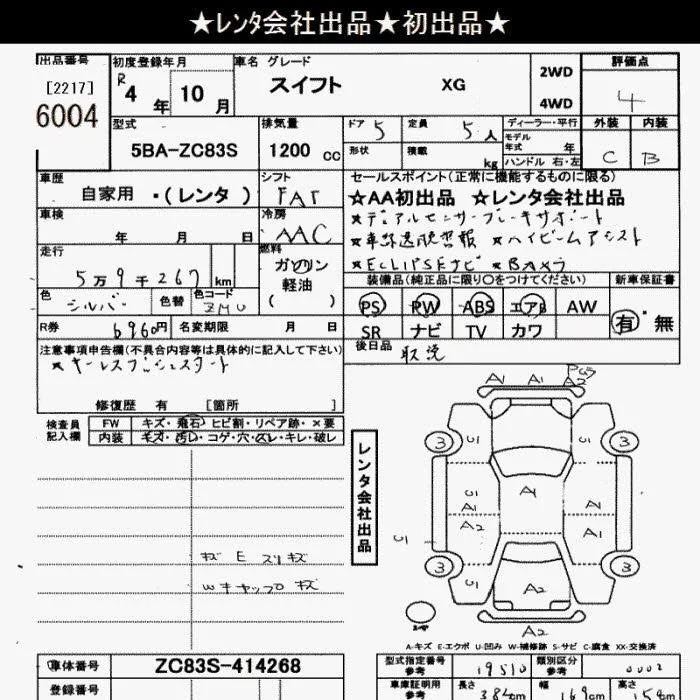 ★レンタ会社出品★初出品★
出品番号 初度登録年月 車名 グレード 評価点
[2217] R 4年 10月 スイフト XG 2WD 4
6004 4WD
型式 排気量 ドア 5 定員 5人 ディーラー・平行 外装 内装
5BA-ZC83S 1200 cc 形状 積載 kg モデル年式 年 C B
ハンドル 右・左
車歴 シフト セールスポイント(正常に機能するものに限る)
自家用 ・(レンタ) FAT ☆AA初出品 ☆レンタ会社出品
車検 冷房 ★デュアルセンサーブレーキサポート
年 月 日 AAC ★車線逸脱警報 ★ハイビームアシスト
走行 燃料 ★ECLIPSEナビ ★Bカメラ
5万9千267 km ガソリン 装備品(純正品に限り○をつけてください) 新車保証書
軽油
( )
色 シルバー 色替 色コード ZMU PS PW ABS エアB AW 有・無
R券 6960円 名変期限 月 日 SR ナビ TV カワ
注意事項申告欄(不具合内容等は具体的に記入して下さい) 後日品 取説
★キーレスプッシュスタート
修復歴 有 [箇所 ]
検査員記入欄 FW キズ・飛石・ヒビ割・リペア跡・×要
内装 キズ・汚レ・コゲ・穴・スレ・キレ・破レ
レンタ会社出品
A1 A1 A2
3 S1 3
A1
S1 A1 A1
A2 A1
S1
3 S1 3
A2
A2
キズ E スリキズ
Wキャップ キズ
A-キズ E-エクボ U-凹み W-補修跡 S-サビ C-腐食 XX-交換済
車体番号 ZC83S-414268 型式指定番号 参考 19510 類別区分 参考 0002
登録番号 車庫証明用 参考 長さ 384cm 幅 169cm 高さ 154cm